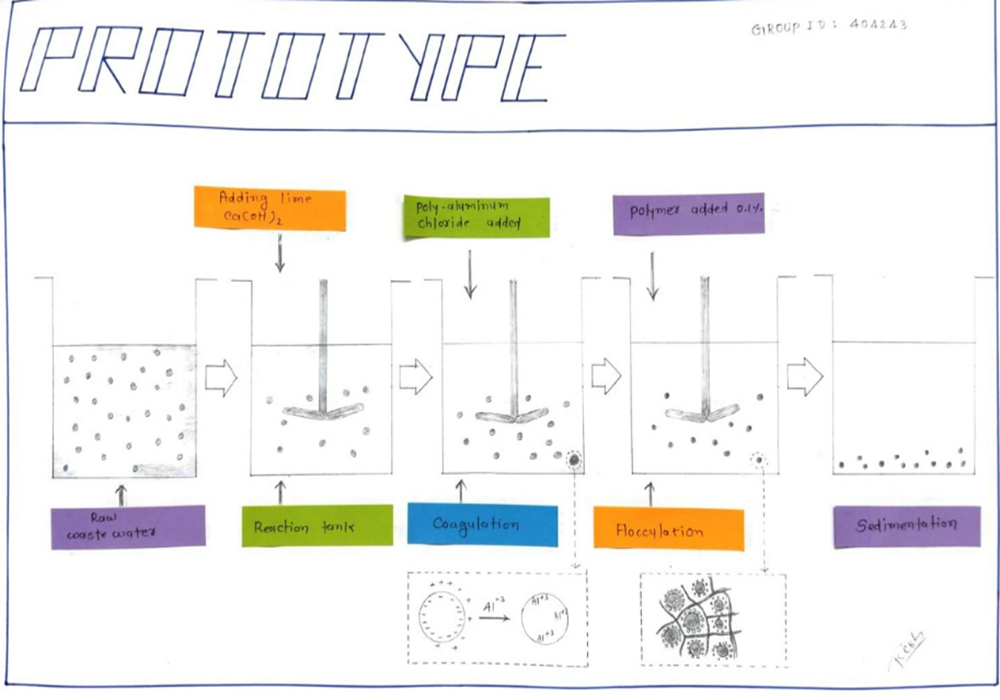 PROTOTYPE
GROUP ID: 404243
Adding lime
Ca(OH)2
Poly-aluminum
chloride added
polymer added 0.1%
Raw
waste water
Reaction tank
Coagulation
Floccylation
Sedimentation
Al+3
Al+3
Al+3
Al+3